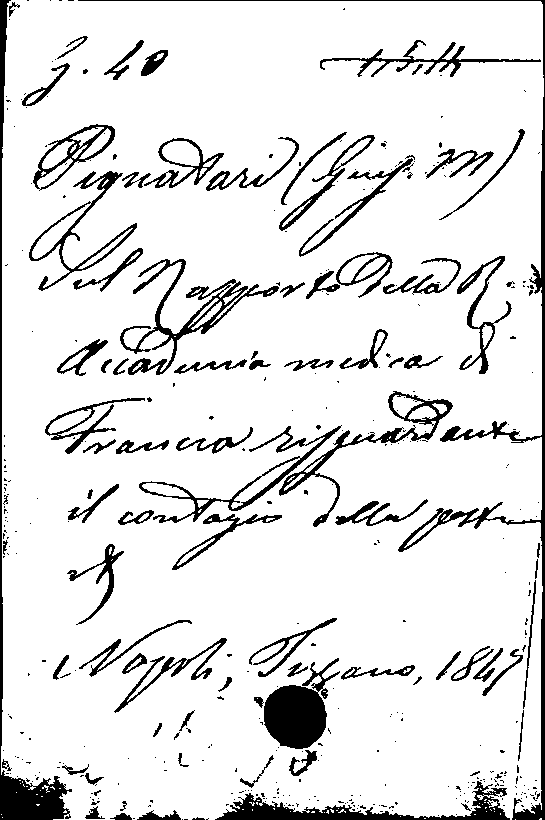 z. 40
Pignatari (Gius. M)
Sul Rapporto della R.
Accademia medica di
Francia risguardante
il contagio della peste
Napoli, Tizzano, 1847